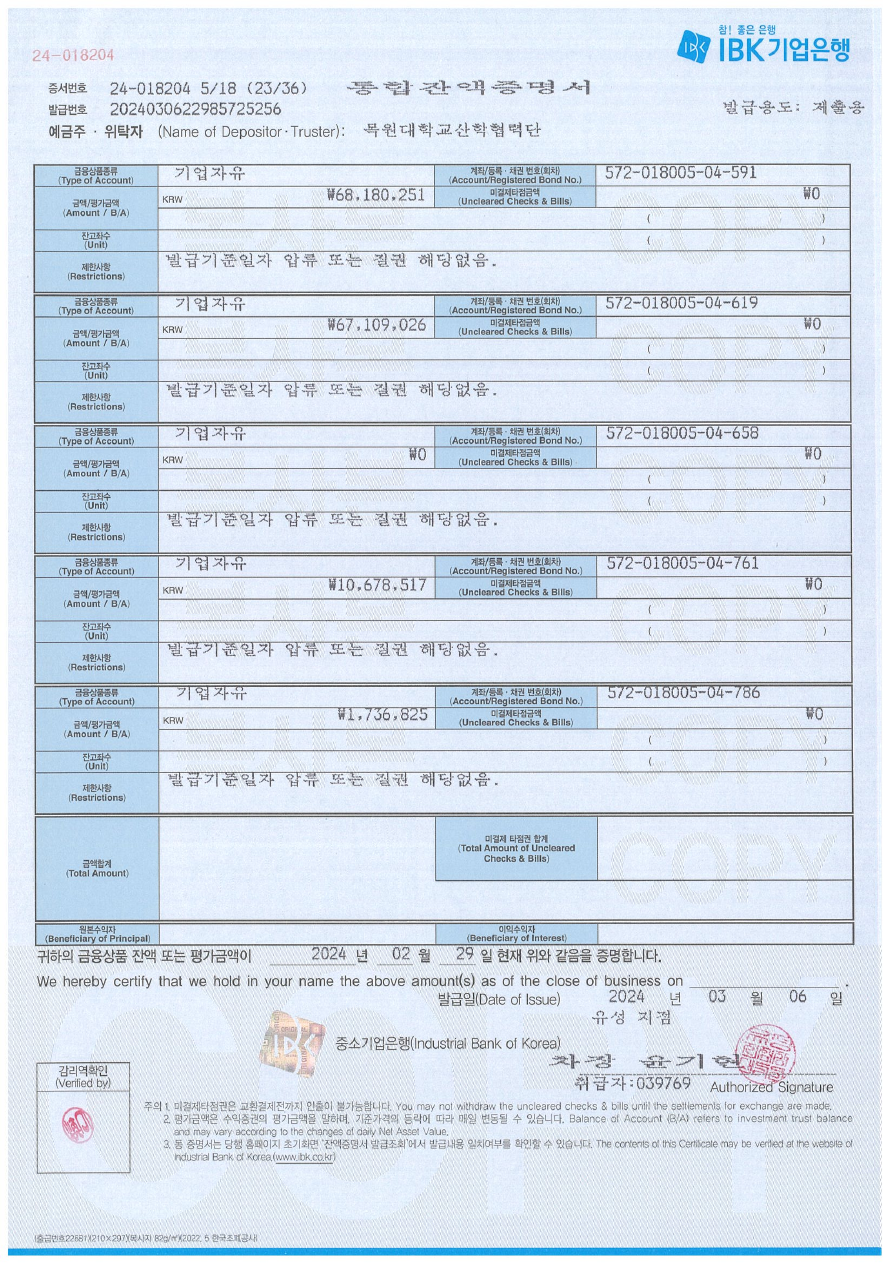 24-018204
참! 좋은 은행
IBK기업은행
증서번호 24-018204 5/18 (23/36) 통합잔액증명서
발급번호 2024030622985725256 발급용도: 제출용
예금주·위탁자 (Name of Depositor·Truster): 목원대학교산학협력단
금융상품종류 (Type of Account) 기업자유 계좌/등록·채권 번호(회차) (Account/Registered Bond No.) 572-018005-04-591
금액/평가금액 (Amount / B/A) KRW ₩68,180,251 미결제타점금액 (Uncleared Checks & Bills) ₩0
( )
잔고좌수 (Unit) ( )
제한사항 (Restrictions) 발급기준일자 압류 또는 질권 해당없음.
금융상품종류 (Type of Account) 기업자유 계좌/등록·채권 번호(회차) (Account/Registered Bond No.) 572-018005-04-619
금액/평가금액 (Amount / B/A) KRW ₩67,109,026 미결제타점금액 (Uncleared Checks & Bills) ₩0
( )
잔고좌수 (Unit) ( )
제한사항 (Restrictions) 발급기준일자 압류 또는 질권 해당없음.
금융상품종류 (Type of Account) 기업자유 계좌/등록·채권 번호(회차) (Account/Registered Bond No.) 572-018005-04-658
금액/평가금액 (Amount / B/A) KRW ₩0 미결제타점금액 (Uncleared Checks & Bills) ₩0
( )
잔고좌수 (Unit) ( )
제한사항 (Restrictions) 발급기준일자 압류 또는 질권 해당없음.
금융상품종류 (Type of Account) 기업자유 계좌/등록·채권 번호(회차) (Account/Registered Bond No.) 572-018005-04-761
금액/평가금액 (Amount / B/A) KRW ₩10,678,517 미결제타점금액 (Uncleared Checks & Bills) ₩0
( )
잔고좌수 (Unit) ( )
제한사항 (Restrictions) 발급기준일자 압류 또는 질권 해당없음.
금융상품종류 (Type of Account) 기업자유 계좌/등록·채권 번호(회차) (Account/Registered Bond No.) 572-018005-04-786
금액/평가금액 (Amount / B/A) KRW ₩1,736,825 미결제타점금액 (Uncleared Checks & Bills) ₩0
( )
잔고좌수 (Unit) ( )
제한사항 (Restrictions) 발급기준일자 압류 또는 질권 해당없음.
금액합계 (Total Amount) 미결제 타점권 합계 (Total Amount of Uncleared Checks & Bills)
COPY
원본수익자 (Beneficiary of Principal) 이익수익자 (Beneficiary of Interest)
귀하의 금융상품 잔액 또는 평가금액이 2024 년 02 월 29 일 현재 위와 같음을 증명합니다.
We hereby certify that we hold in your name the above amount(s) as of the close of business on .
발급일(Date of Issue) 2024 년 03 월 06 일
유성 지점
IBK
중소기업은행(Industrial Bank of Korea)
차장 윤기현
감리역확인 (Verified by)
취급자:039769 Authorized Signature
주의 1. 미결제타점권은 교환결제전까지 인출이 불가능합니다. You may not withdraw the uncleared checks & bills until the settlements for exchange are made.
2. 평가금액은 수익증권의 평가금액을 말하며, 기준가격의 등락에 따라 매일 변동될 수 있습니다. Balance of Account (B/A) refers to investment trust balance
and may vary according to the changes of daily Net Asset Value.
3. 동 증명서는 당행 홈페이지 초기화면 '잔액증명서 발급조회'에서 발급내용 일치여부를 확인할 수 있습니다. The contents of this Certificate may be verified at the website of
Industrial Bank of Korea.(www.ibk.co.kr)
COPY
(출급번호22681)(210×297)(복사지 82g/㎡)(2022. 5 한국조폐공사)